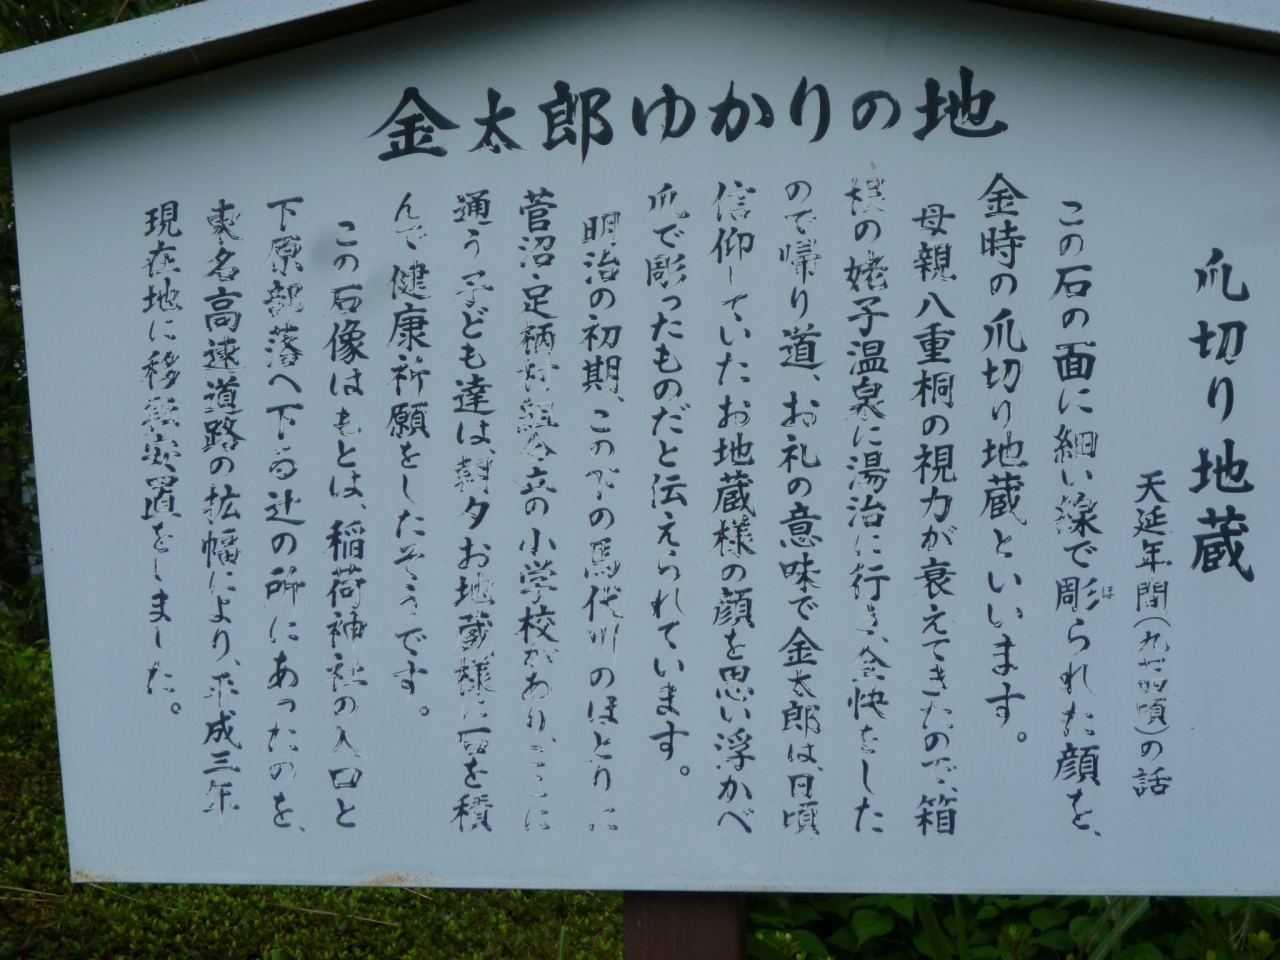 金太郎ゆかりの地
爪切り地蔵
天延年間(九七四頃)の話
この石の面に細い線で彫られた顔を、
ほ
金時の爪切り地蔵といいます。
母親八重桐の視力が衰えてきたので、箱
根の姥子温泉に湯治に行き、全快をした
ので帰り道、お礼の意味で金太郎は、日頃
信仰していたお地蔵様の顔を思い浮かべ
爪で彫ったものだと伝えられています。
明治の初期、この下の馬代川のほとりに
菅沼・足柄村組合立の小学校があり、ここに
通う子ども達は、朝夕お地蔵様に石を積
んで健康祈願をしたそうです。
この石像はもとは、稲荷神社の入口と
下原部落へ下る辻の所にあったのを、
東名高速道路の拡幅により、平成三年
現在地に移転安置をしました。